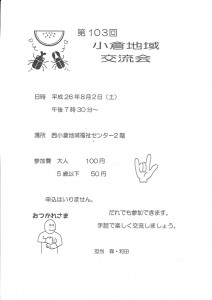 第103回
小倉地域
交流会
日時 平成26年8月2日（土）
午後7時30分～
場所 西小倉地域福祉センター2階
参加費 大人 100円
5歳以下 50円
申込はいりません。
おつかれさま
だれでも参加できます。
手話で楽しく交流しましょう。
担当 森・和田